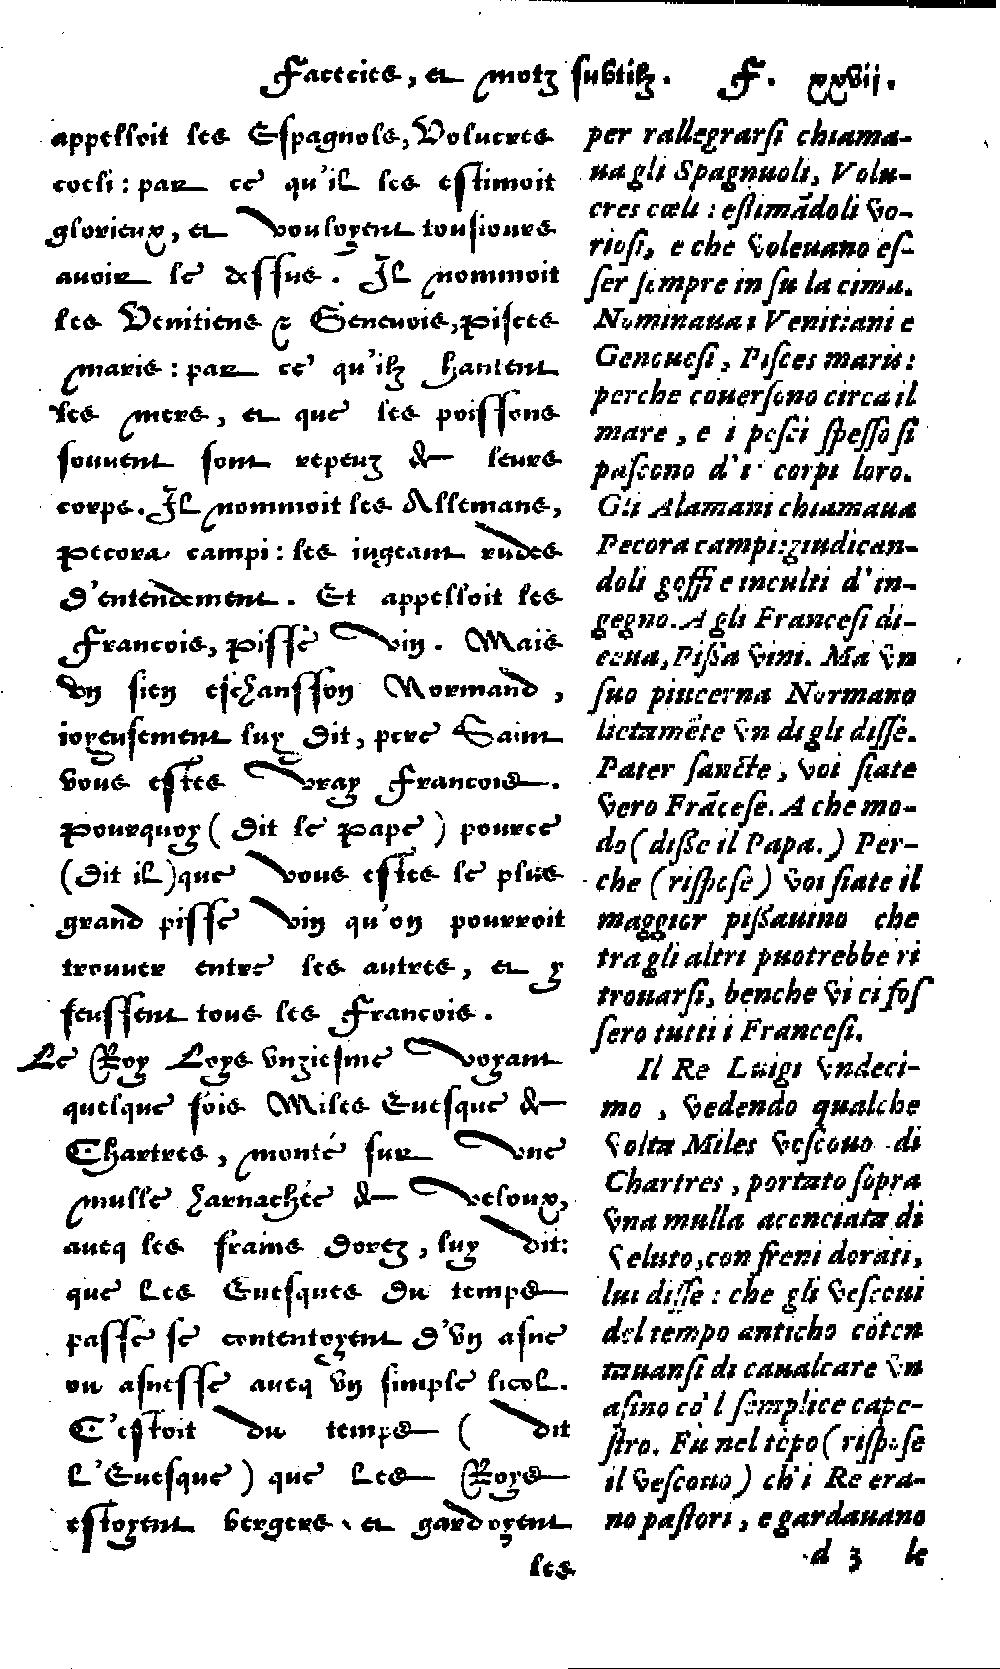 Facecies, et motz subtilz. F. xxvij.
appelloit les Espagnols, Volucres
coeli: par ce qu'il les estimoit
glorieux, et vouloyent tousiours
auoir le dessus. Il nommoit
les Venitiens & Geneuois, pisces
maris: par ce qu'ilz hantent
les mers, et que les poissons
souuent sont repeuz de leurs
corps. Il nommoit les Allemans,
pecora campi: les iugeant rudes
d'entendement. Et appelloit les
Francois, pisse vin. Mais
vn sien eschansson Normand,
ioyeusement luy dit, pere Saint
vous estes vray Francois.
pourquoy (dit le pape) pource
(dit il) que vous estes le plus
grand pisse vin qu'on pourroit
trouuer entre les autres, et y
feussent tous les Francois.
Le Roy Loys vnziesme voyant
quelque fois Miles Euesque de
Chartres, monté sur vne
mulle harnachée de veloux,
aueq les frains dorez, luy dit:
que les Euesques du temps
passé se contentoyent d'vn asne
ou asnesse aueq vn simple licol.
C'estoit du temps (dit
l'Euesque) que les Roys
estoyent bergers, et gardoyent
les
per rallegrarsi chiama-
ua gli Spagnuoli, Volu-
cres cœli: estimãdoli vo-
riosi, e che voleuano es-
ser sempre in su la cima.
Nominaua i Venitiani e
Geneuesi, Pisces maris:
perche couersono circa il
mare, e i pesci spesso si
pascono d'i corpi loro.
Gli Alamani chiamaua
Pecora campi: giudican-
doli goffi e inculti d'in-
gegno. A gli Francesi di-
ceua, Pissa vini. Ma vn
suo pincerna Normano
lietamẽte vn di gli disse.
Pater sancte, voi siate
vero Frãcese. A che mo-
do (disse il Papa.) Per-
che (rispose) voi siate il
maggior pissauino che
tra gli altri puotrebbe ri
trouarsi, benche vi ci fos
sero tutti i Francesi.
Il Re Luigi vndeci-
mo, vedendo qualche
volta Miles vescouo di
Chartres, portato sopra
vna mulla acenciata di
veluto, con freni dorati,
lui disse: che gli vescoui
del tempo anticho cõten
tauansi di caualcare vn
asino co'l semplice cape-
stro. Fu nel tẽpo (rispose
il vescouo) ch'i Re era-
no pastori, e gardauano
d 3 le